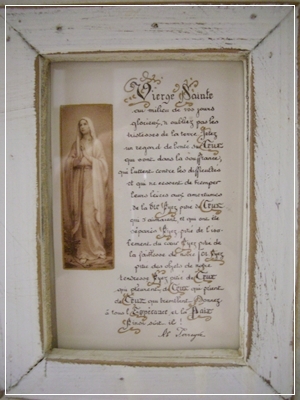 Vierge Sainte
au milieu de vos jours
glorieux, n'oubliez pas les
tristesses de la terre. Jetez
un regard de bonté sur Ceux
qui sont dans la souffrance,
qui luttent contre les difficultés
et qui ne cessent de tremper
leurs lèvres aux amertumes
de la vie. Ayez pitié de Ceux
qui s'aimaient et qui ont été
séparés. Ayez pitié de l'iso-
lement du cœur. Ayez pitié de
la faiblesse de notre foi. Ayez
pitié des objets de notre
tendresse. Ayez pitié de Ceux
qui pleurent, de Ceux qui prient,
de Ceux qui tremblent. Donnez
à tous l'Espérance et la Paix